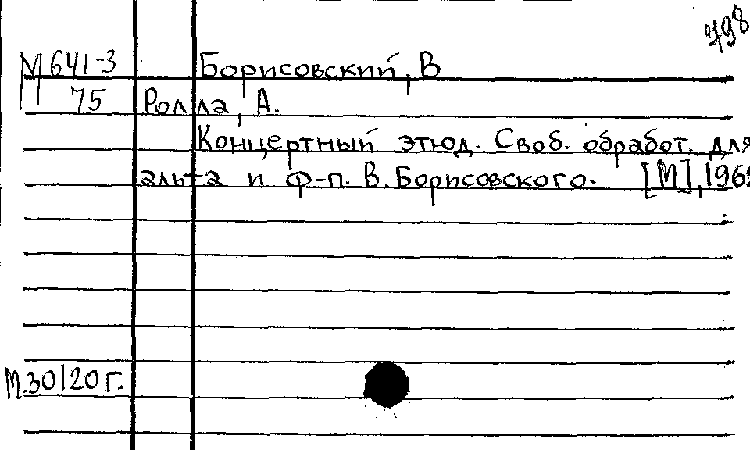 498
М 641-3 Борисовский, В
75 Ролла, А.
Концертный этюд. Своб. обработ. для
альта и ф-п. В. Борисовского. [М],
М.30120 г.